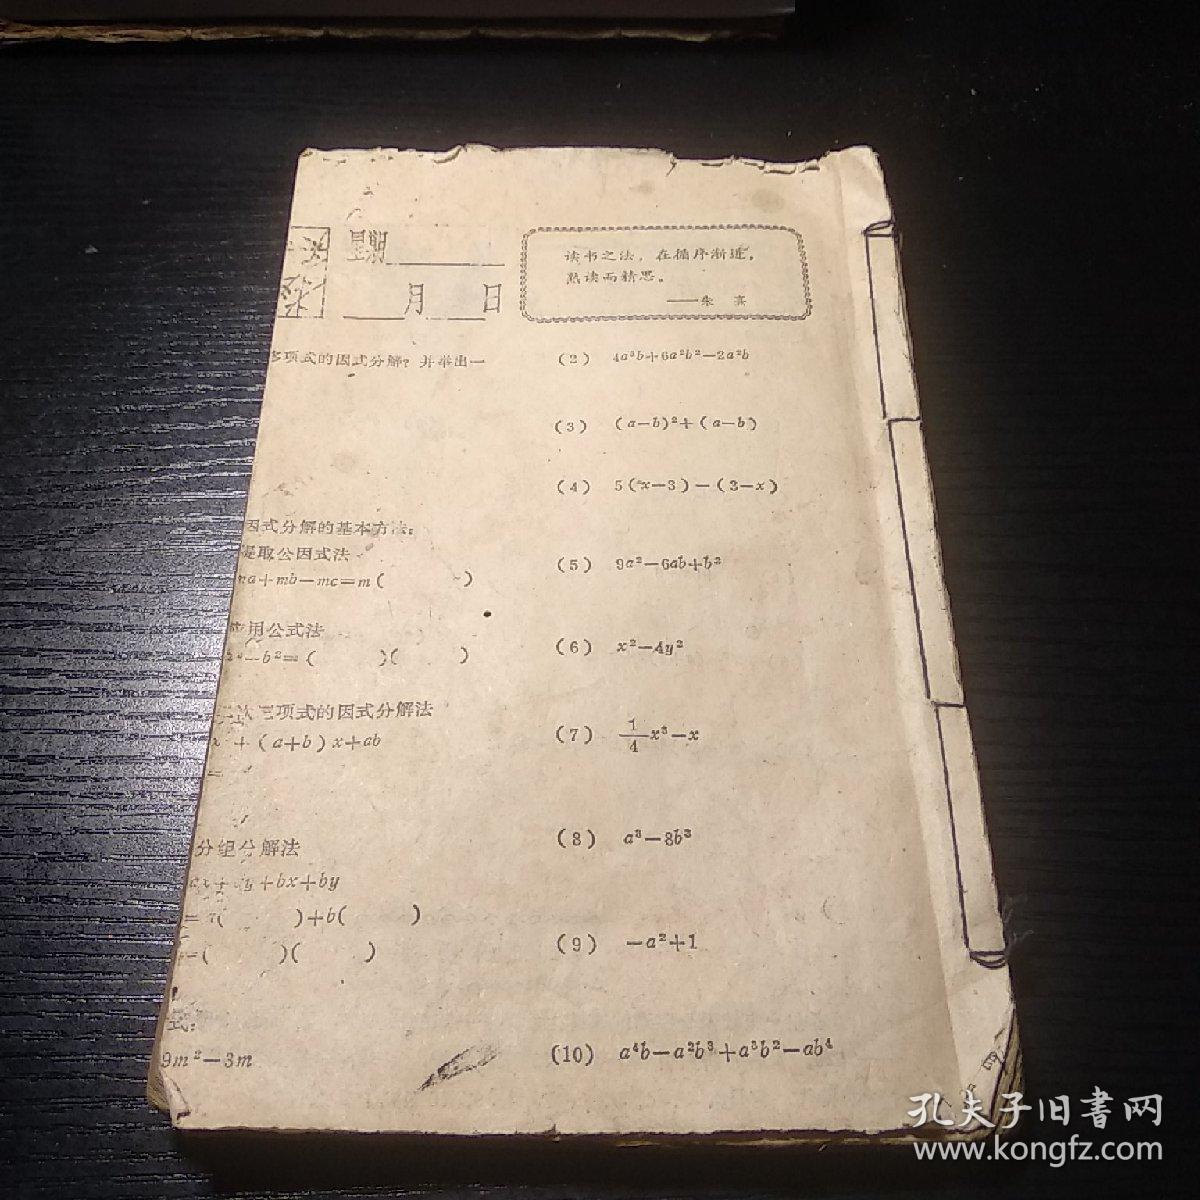 星期
月 日
读书之法，在循序渐进，
熟读而精思。
——朱 熹
多项式的因式分解？并举出一
因式分解的基本方法：
提取公因式法
ma+mb−mc=m( )
应用公式法
a²−b²=( )( )
二次三项式的因式分解法
x²+(a+b)x+ab
=
分组分解法
ax+ay+bx+by
=( )+b( )
=( )( )
式：
9m²−3m
(2) 4a³b+6a²b²−2a²b
(3) (a−b)²+(a−b)
(4) 5(x−3)−(3−x)
(5) 9a²−6ab+b²
(6) x²−4y²
(7) 1/4x³−x
(8) a³−8b³
(9) −a²+1
(10) a⁴b−a²b³+a³b²−ab⁴
孔夫子旧書网
www.kongfz.com